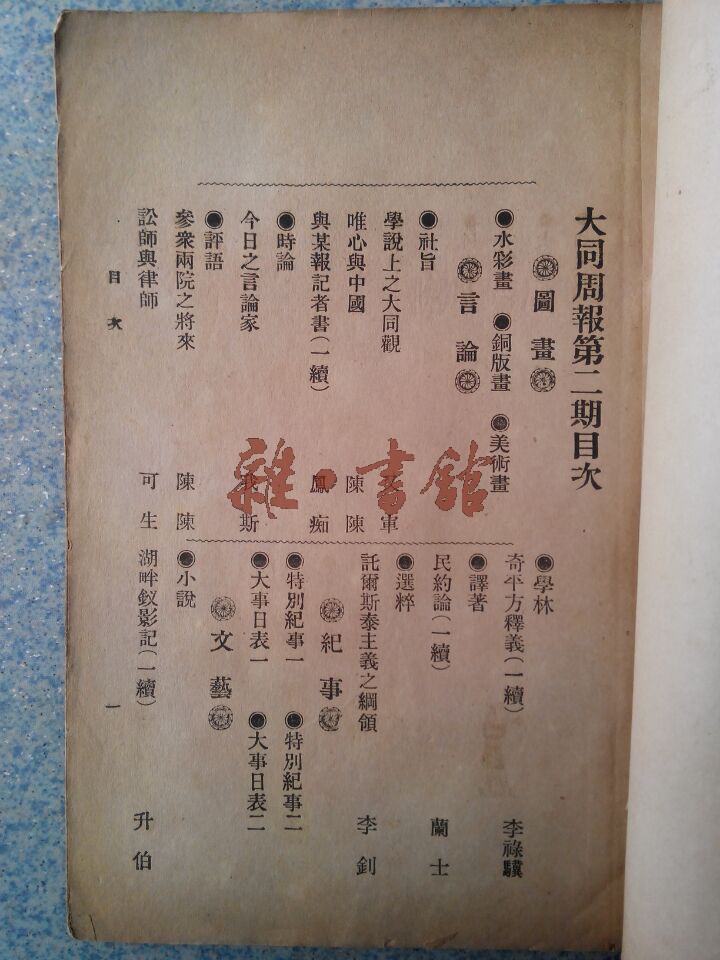 大同周報第二期目次
圖畫
●水彩畫 ●銅版畫 ●美術畫
言論
●社旨
學說上之大同觀 軍
唯心與中國 陳陳
與某報記者書(一續) 鳳痴
●時論
今日之言論家 我斯
●評語
參衆兩院之將來 陳陳
訟師與律師 可生
●學林
奇平方釋義(一續) 李祿驥
●譯著
民約論(一續) 蘭士
●選粹
託爾斯泰主義之綱領 李釗
紀事
●特別紀事一 ●特別紀事二
●大事日表一 ●大事日表二
文藝
●小說
湖畔釵影記(一續) 升伯
目次 一
雜·書館